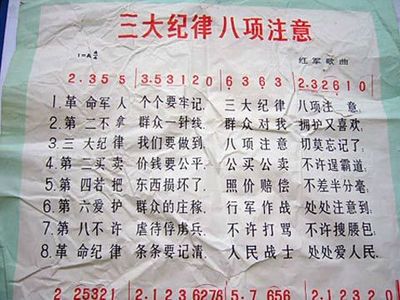 三大纪律八项注意
1=A 4/4
红军歌曲
2.355 3.53120 6363 2.32610
1.革命军人 个个要牢记, 三大纪律 八项注意,
2.第二不拿 群众一针线, 群众对我 拥护又喜欢;
3.三大纪律 我们要做到, 八项注意 切莫忘记了;
4.第二买卖 价钱要公平, 公买公卖 不许逞霸道;
5.第四若把 东西损坏了, 照价赔偿 不差半分毫;
6.第六爱护 群众的庄稼, 行军作战 处处注意到;
7.第八不许 虐待俘虏兵, 不许打骂 不许搜腰包;
8.革命纪律 条条要记清, 人民战士 处处爱人民,
2 25321 2.123 6276 5.7 656 2.1230